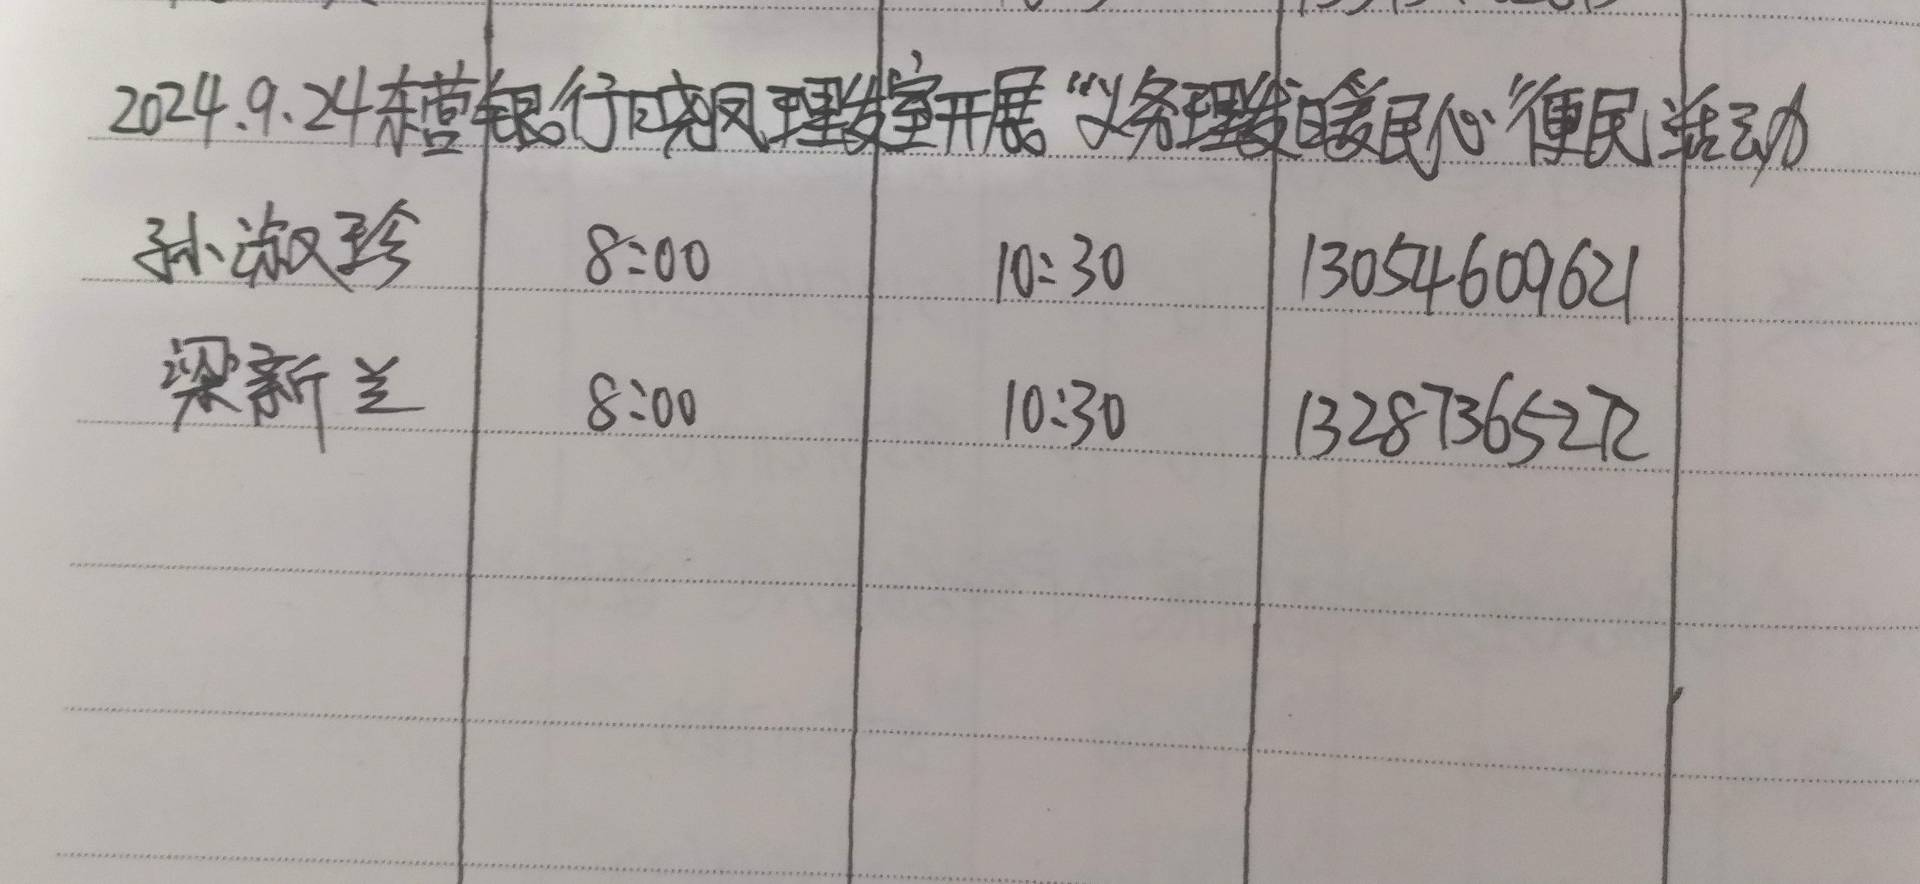 2024.9.24东营银行晓凤理发室开展“义务理发暖民心”便民活动
孙淑珍 8:00 10:30 13054609621
梁新兰 8:00 10:30 13287365272